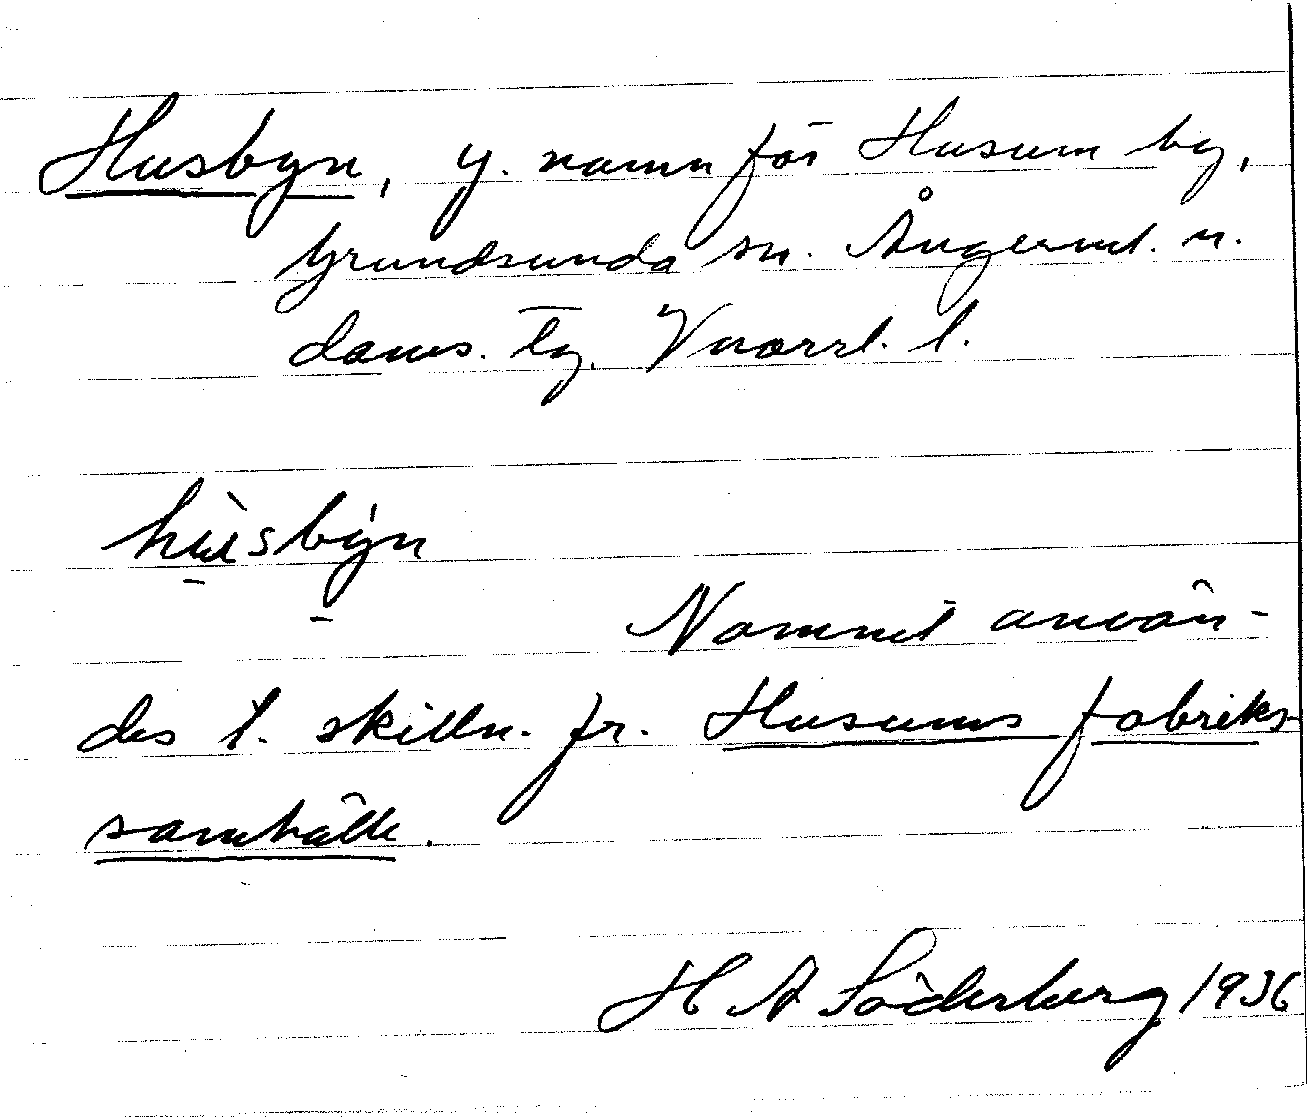 Husbyn, y. namn för Husum by,
Grundsunda sn. Ångerml. n.
doms. tg. Vnorrl. l.
hùsby̍n
Namnet använ-
des t. skilln. fr. Husums fabriks
samhälle.
H A Söderberg 1936